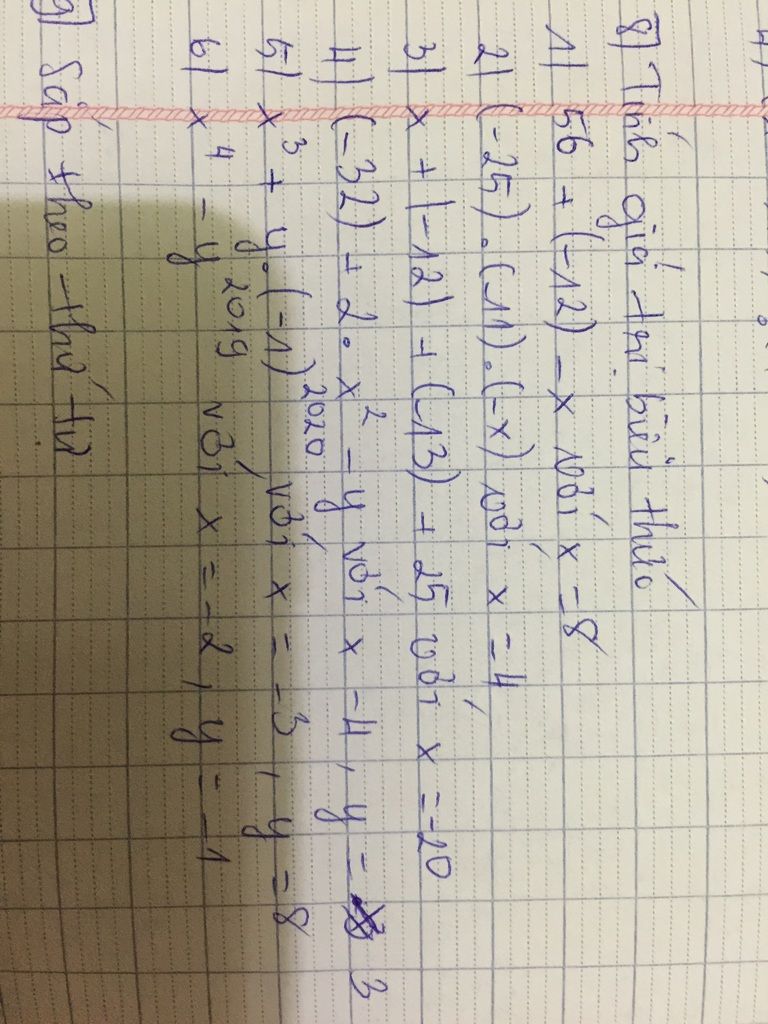 8) Tính giá trị biểu thức
1) 56 + (-12) - x với x = 8
2) (-25).(-11).(-x) với x = 4
3) x + (-12) + (-13) + 25 với x = -20
4) (-32) + 2.x² - y với x -4, y = 3
5) x³ + y.(-1)²⁰²⁰ với x = -3, y = 8
6) x⁴ - y²⁰¹⁹ với x = -2, y = -1
9) Sắp theo thứ tự